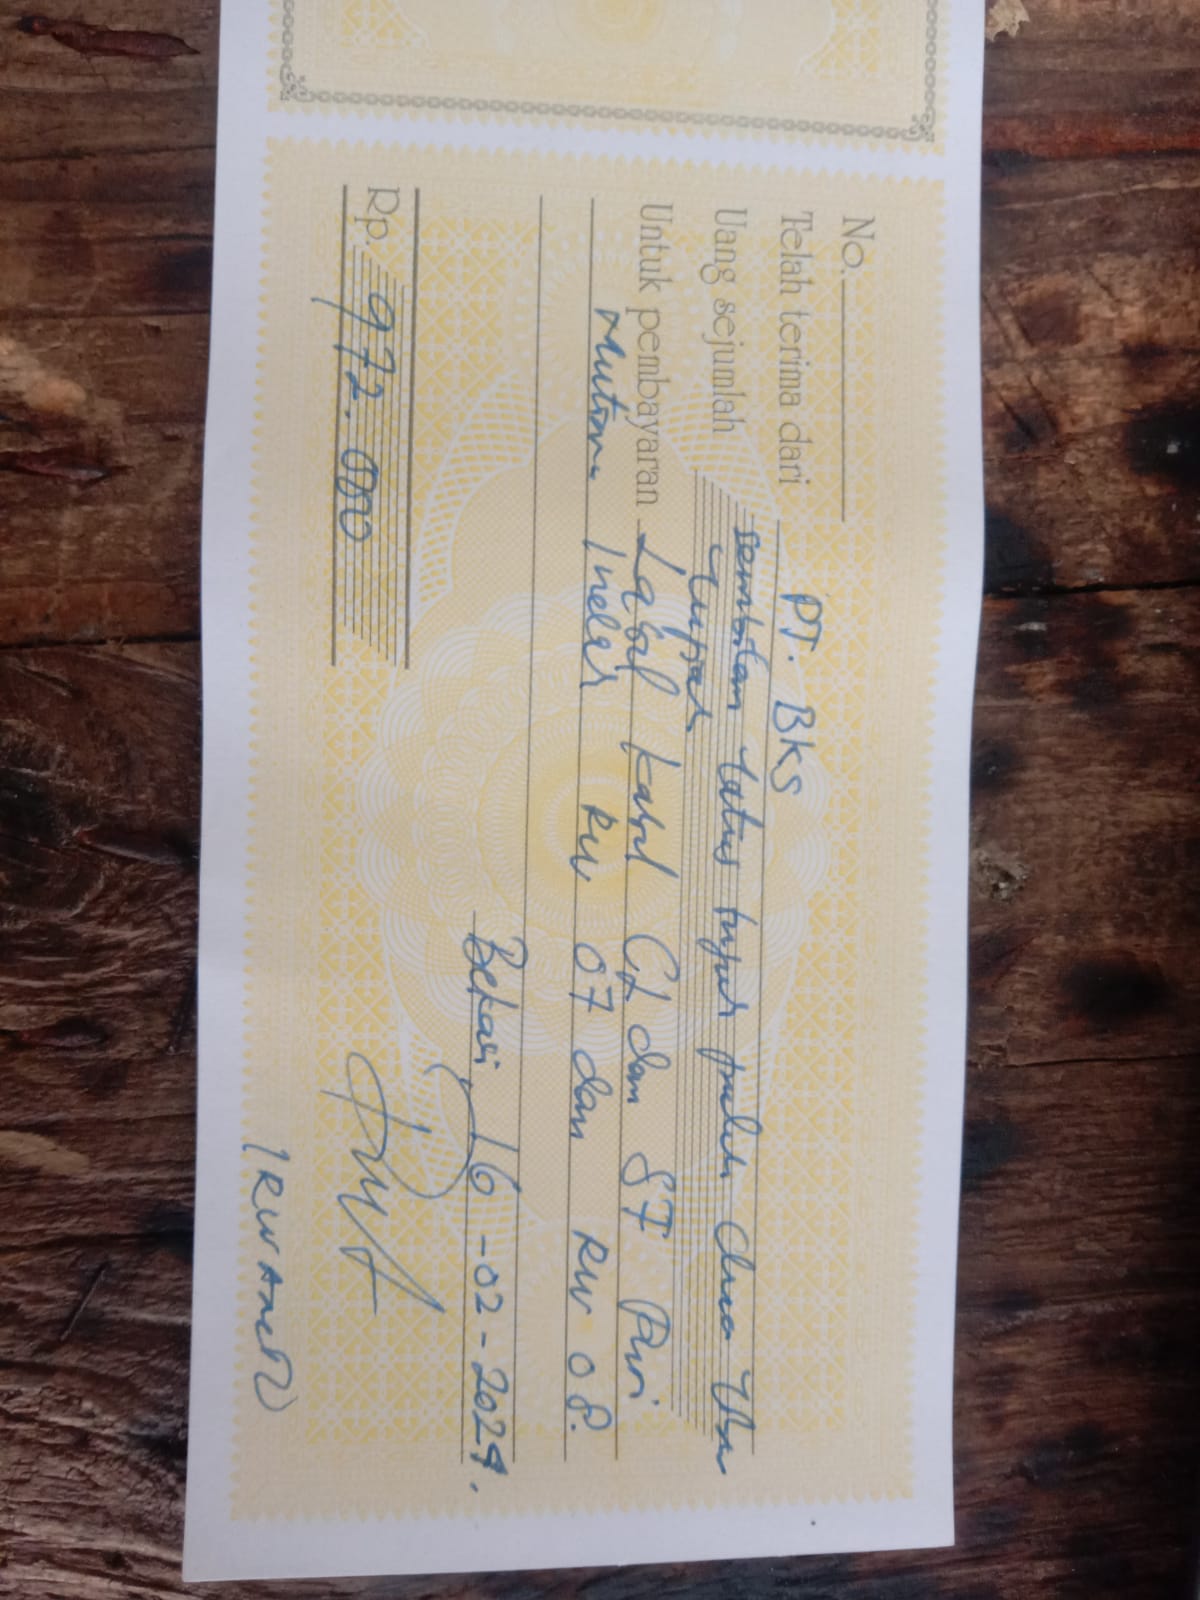 No.
Telah terima dari PT. BKS
Uang sejumlah sembilan ratus tujuh puluh dua ribu
rupiah
Untuk pembayaran Label kabel CL dan SF Puri
Mutiara Ineer RW 07 dan RW 08.
Bekasi, 16-02-2024.
Rp. 972.000